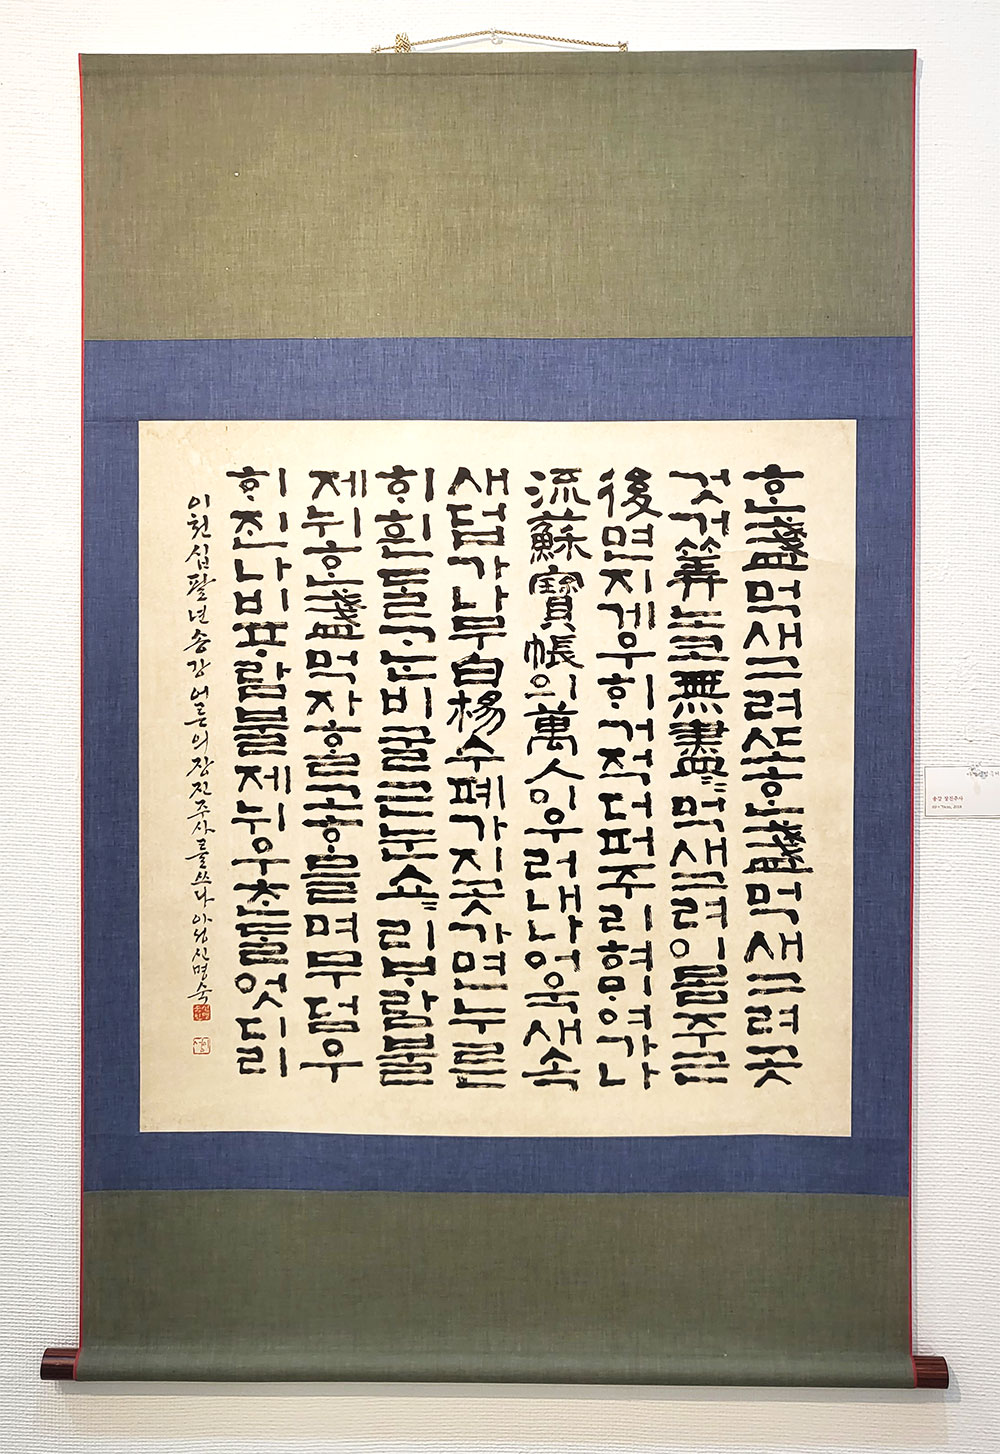 ᄒᆞᆫ盞먹새그려ᄯᅩᄒᆞᆫ盞먹새그려곳
것거筭노코無盡〃먹새그려이몸주근
後면지게우ᄒᆡ거적더퍼주리혀ᄆᆡ여가나
流蘇寶帳의萬人이우러녜나어욱새속
새덥가나무白楊수폐가기곳가면누른
ᄒᆡ흰ᄃᆞᆯᄀᆞᄂᆞᆫ비굴근눈쇼〃리ᄇᆞ람불
제뉘ᄒᆞᆫ盞먹자ᄒᆞᆯ고ᄒᆞ믈며무덤우
ᄒᆡ진나비ᄑᆞ람불제뉘우ᄎᆞᆫᄃᆞᆯ엇디리
이천십팔년송강어른의장진주사를쓰다 신명숙
송강 장진주사